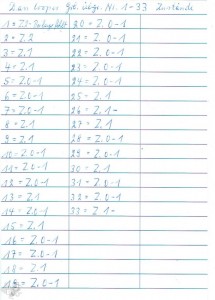 Nr. 1-33 Zustände
1 = Z.
20 = Z.0-1
2 = Z.2
21 = Z.0-1
3 = Z.1
22 = Z.0-1
4 = Z.1
23 = Z.0-1
5 = Z.0-1
24 = Z.0-1
6 = Z.0-1
25 = Z.1
7 = Z.0-1
26 = Z.1-
8 = Z.1
27 = Z.1
9 = Z.1
28 = Z.0-1
10 = Z.0-1
29 = Z.0-1
11 = Z.0-1
30 = Z.1
12 = Z.0-1
31 = Z.0-1
13 = Z.1
32 = Z.0-1
14 = Z.0-1
33 = Z.1-
15 = Z.1
16 = Z.0-1
17 = Z.0-1
18 = Z.1
19 = Z.0-1